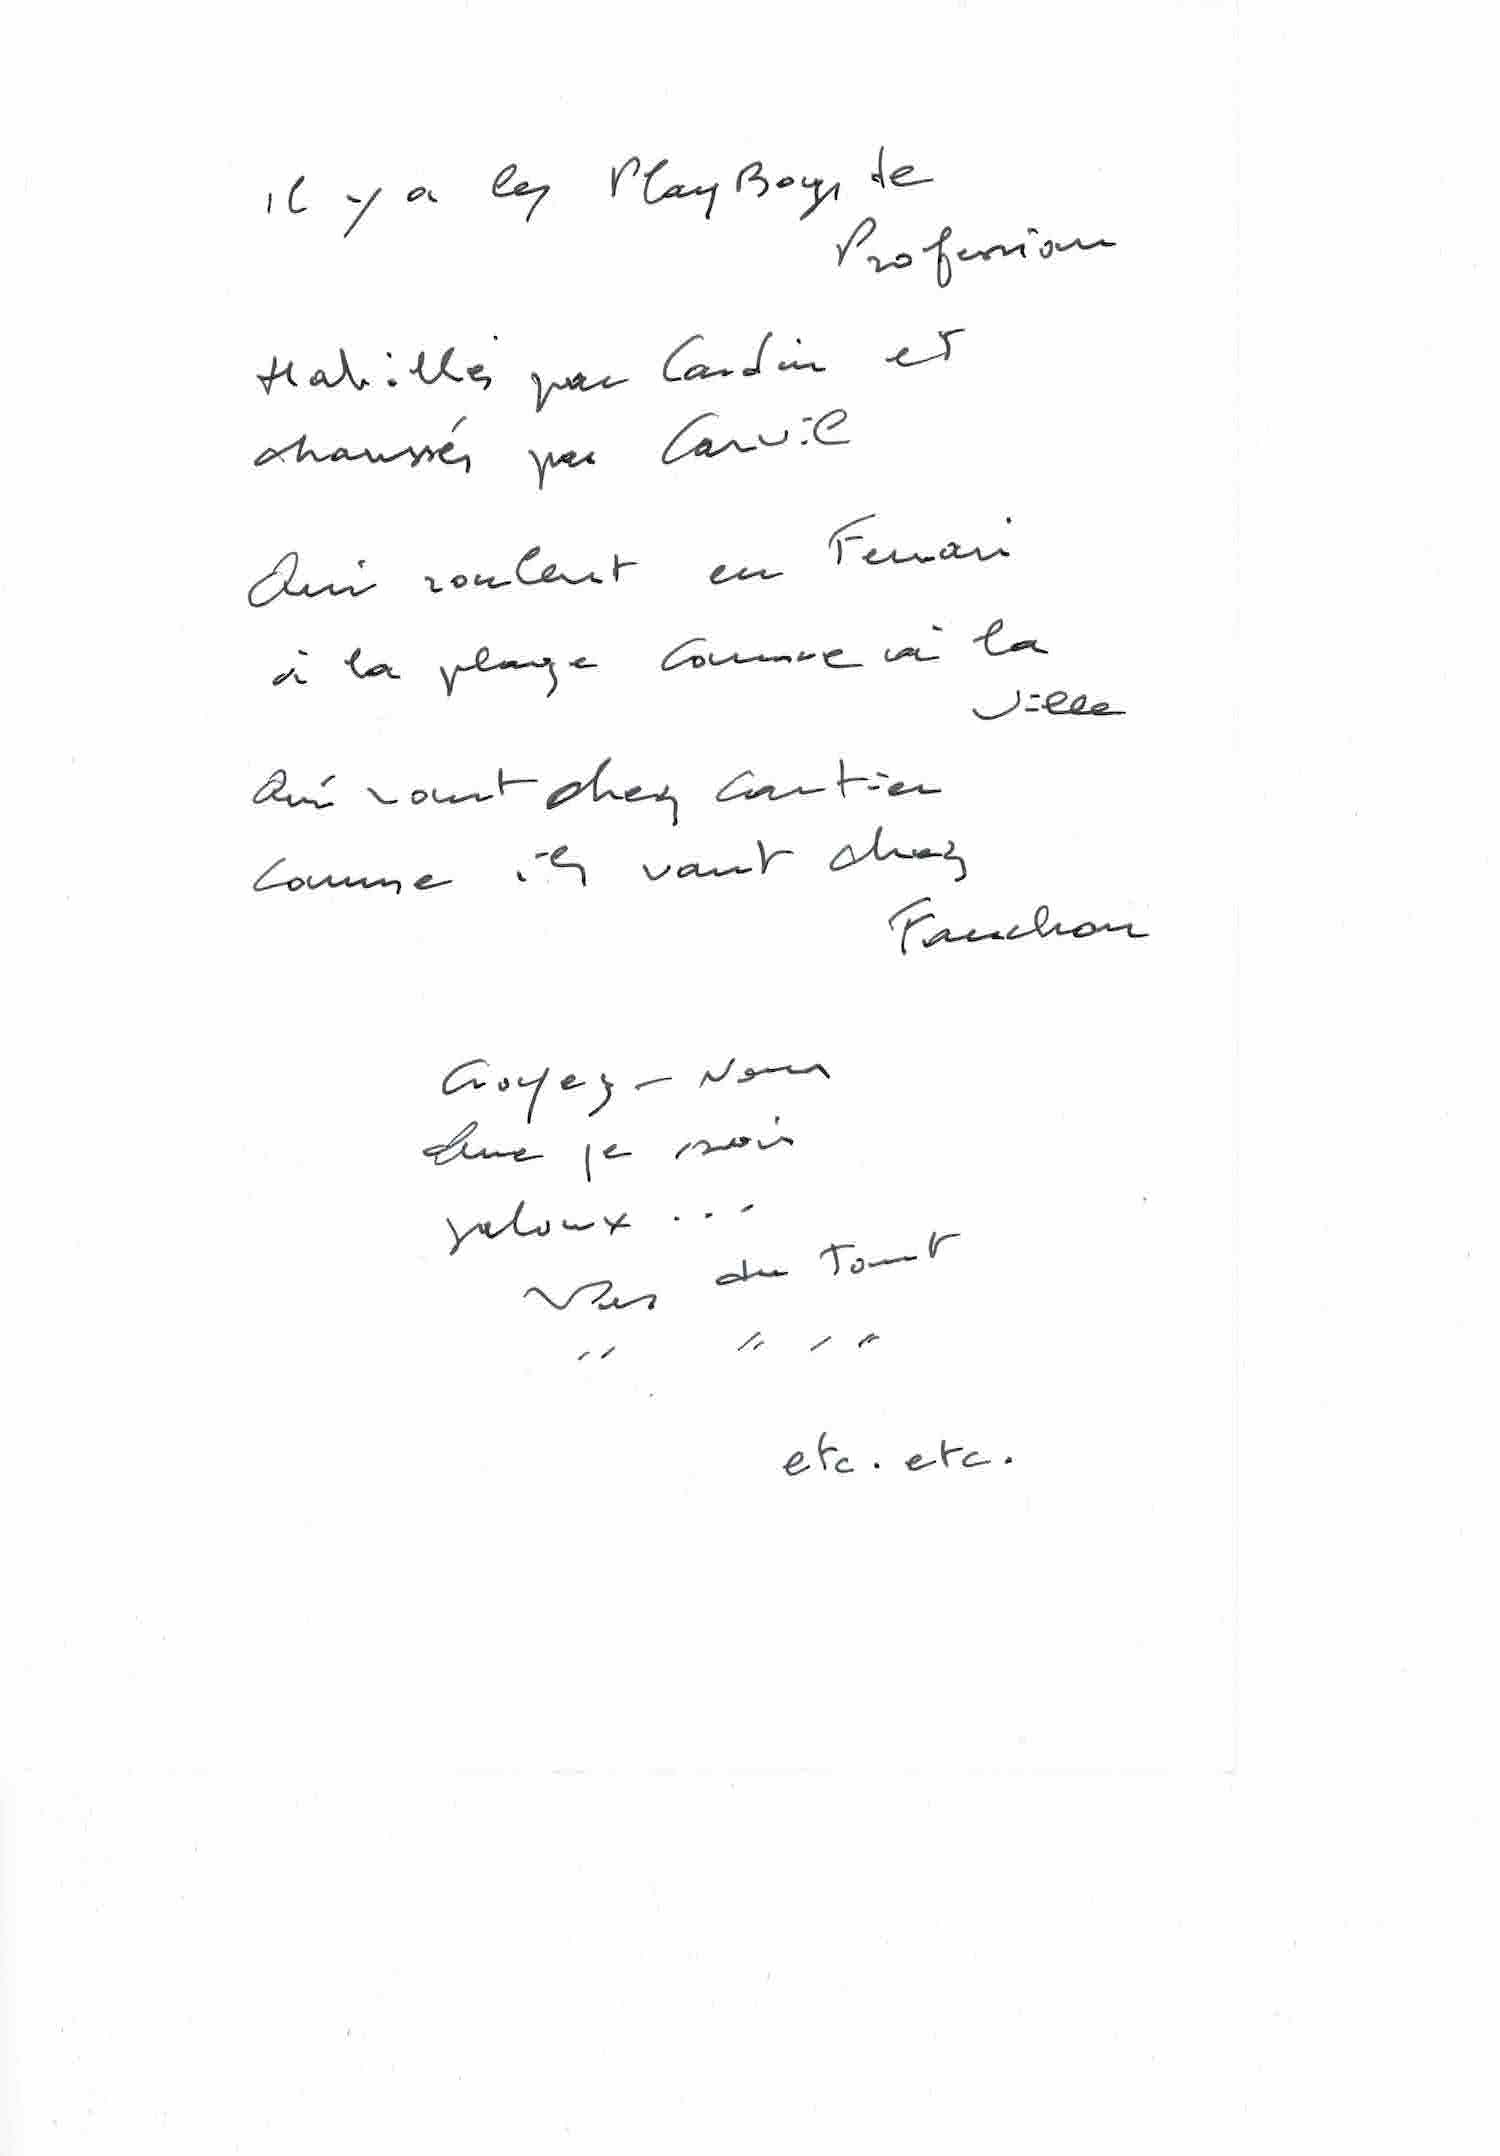 il y a les PlayBoys de
Profession
Habillés par Cardin et
chaussés par Carvil
Qui roulent en Ferrari
à la plage comme à la
ville
Qui vont chez Cartier
comme ils vont chez
Fauchon
Croyez-vous
Que je sois
jaloux...
Pas du tout
" " " "
etc. etc.